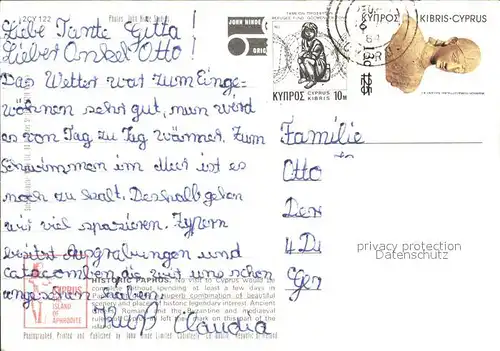 2CY 122
Photo: John Hinde Studios
Liebe Tante Gitta!
Lieber Onkel Otto!
Das Wetter war zum Einge-
wöhnen sehr gut, nun wird
es von Tag zu Tag wärmer. Zum
Schwimmen im Meer ist es
noch zu kalt. Deshalb gehen
wir viel spazieren. Zypern
besitzt Ausgrabungen und
Catacomben, die wir uns schon
angesehen haben.
Kuß Claudia
JOHN HINDE
ΚΥΠΡΟΣ
CYPRUS
KIBRIS
10M
ΚΥΠΡΟΣ KIBRIS·CYPRUS
13
Familie
Otto
4 Dü
privacy protection
Datenschutz
CYPRUS
ISLAND
OF
APHRODITE
HISTORIC PAPHOS. No visit to Cyprus would be
complete without spending at least a few days in
superb combination of beautiful
scenery and places of historic legendary interest. Ancient
and Romans and the Byzantine and mediaeval
left their mark on this part of
the island.